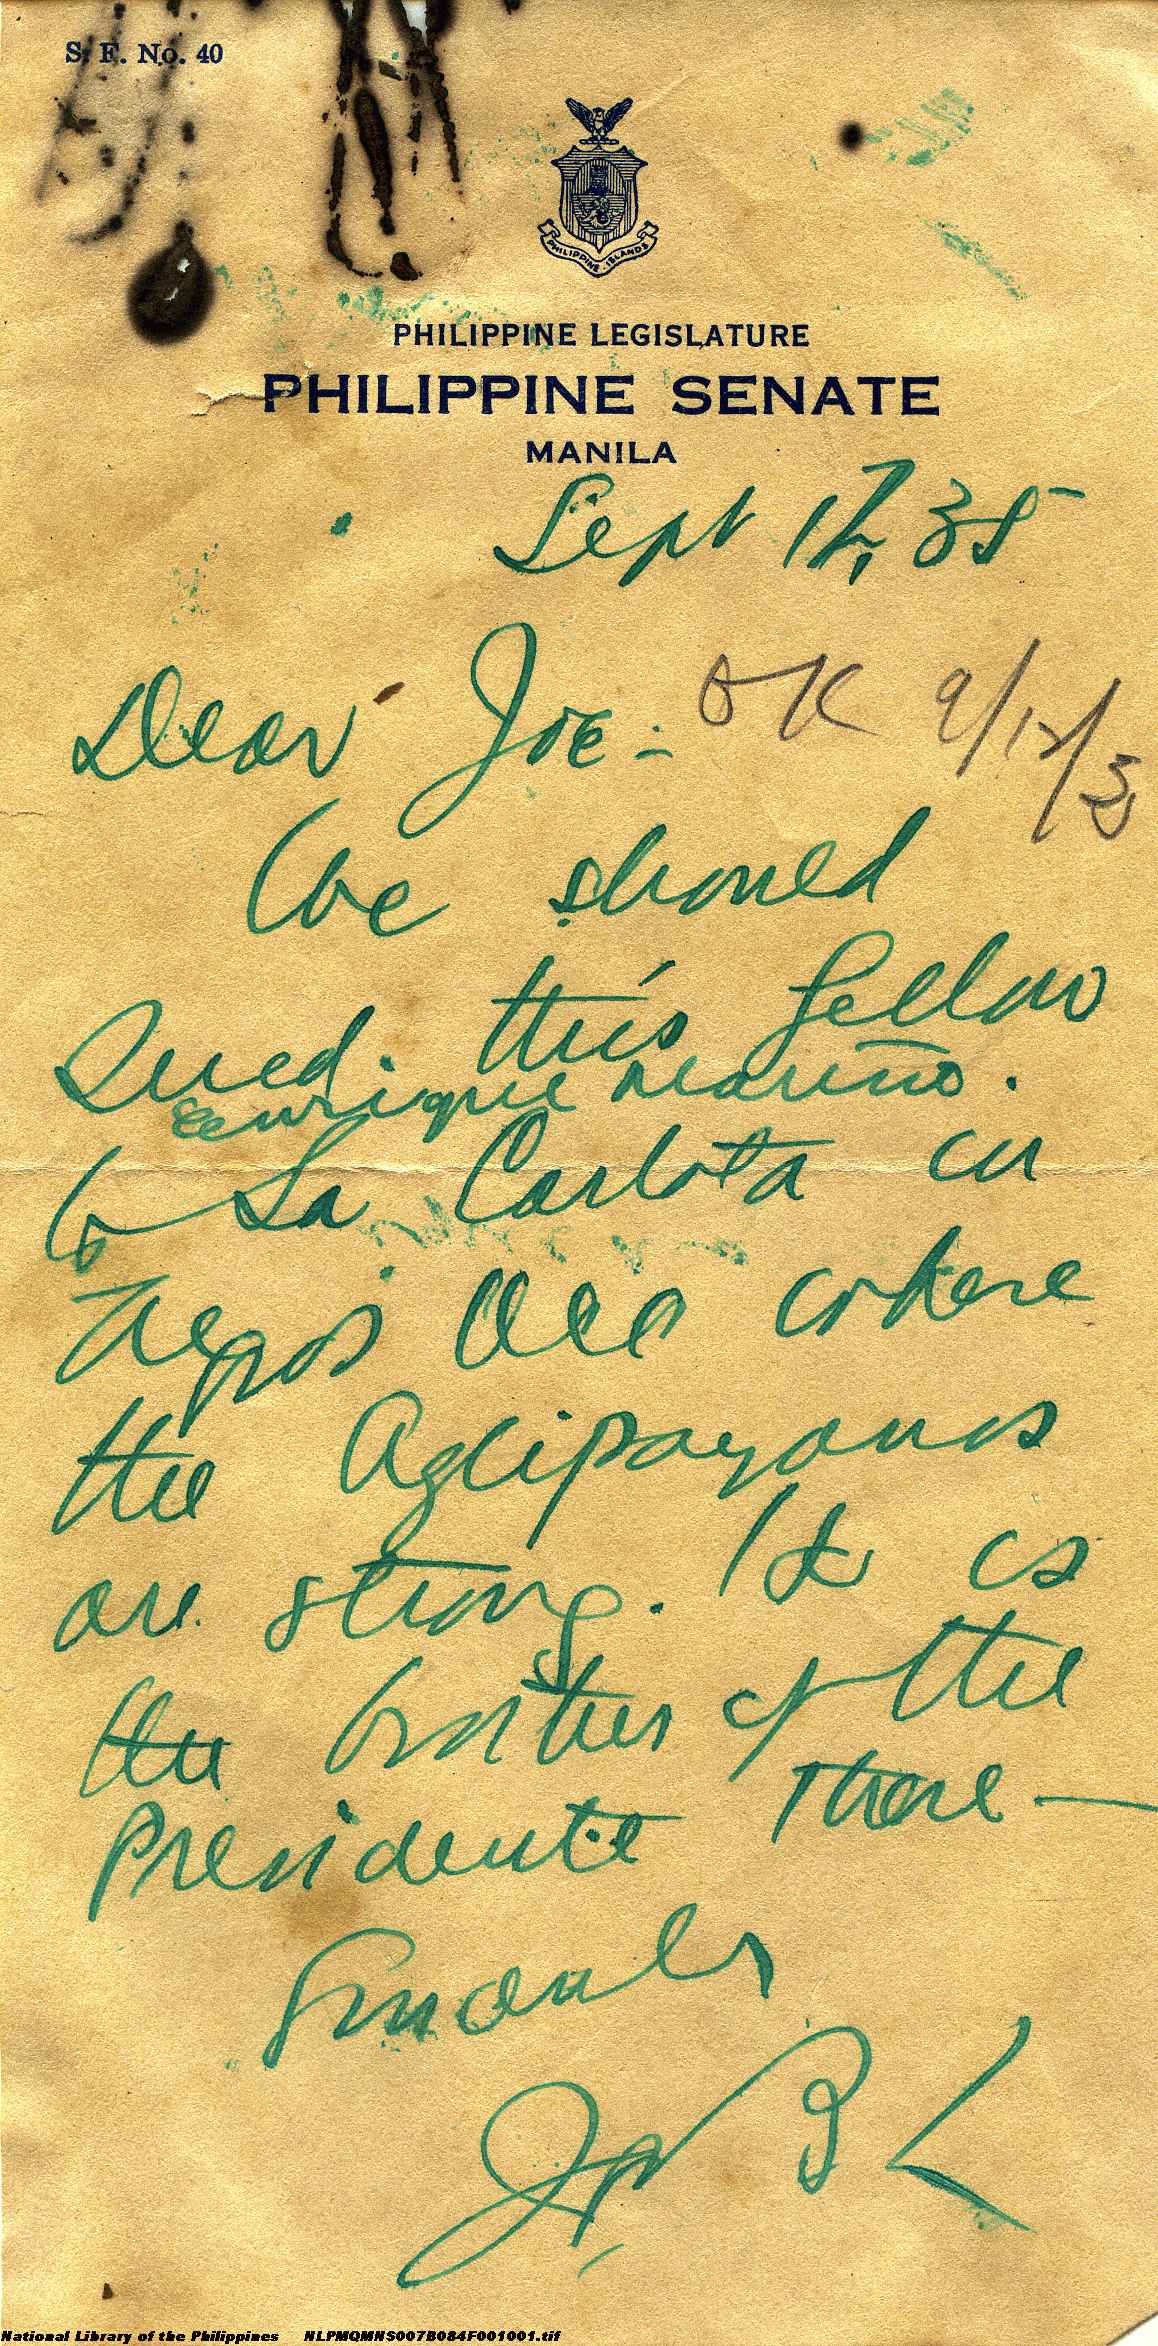 S. F. No. 40
PHILIPPINE ISLANDS
PHILIPPINE LEGISLATURE
PHILIPPINE SENATE
MANILA
Sept 12, 35
Dear Joe -
OK 9/12/3
We should
send this fellow
Enrique Mariño.
to La Carlota in
Negros Occ where
the Aglipayanos
are strong. He is
the brother of the
Presidente there -
Sincerely
J P B L
National Library of the Philippines NLPMQMNS007B084F001001.tif